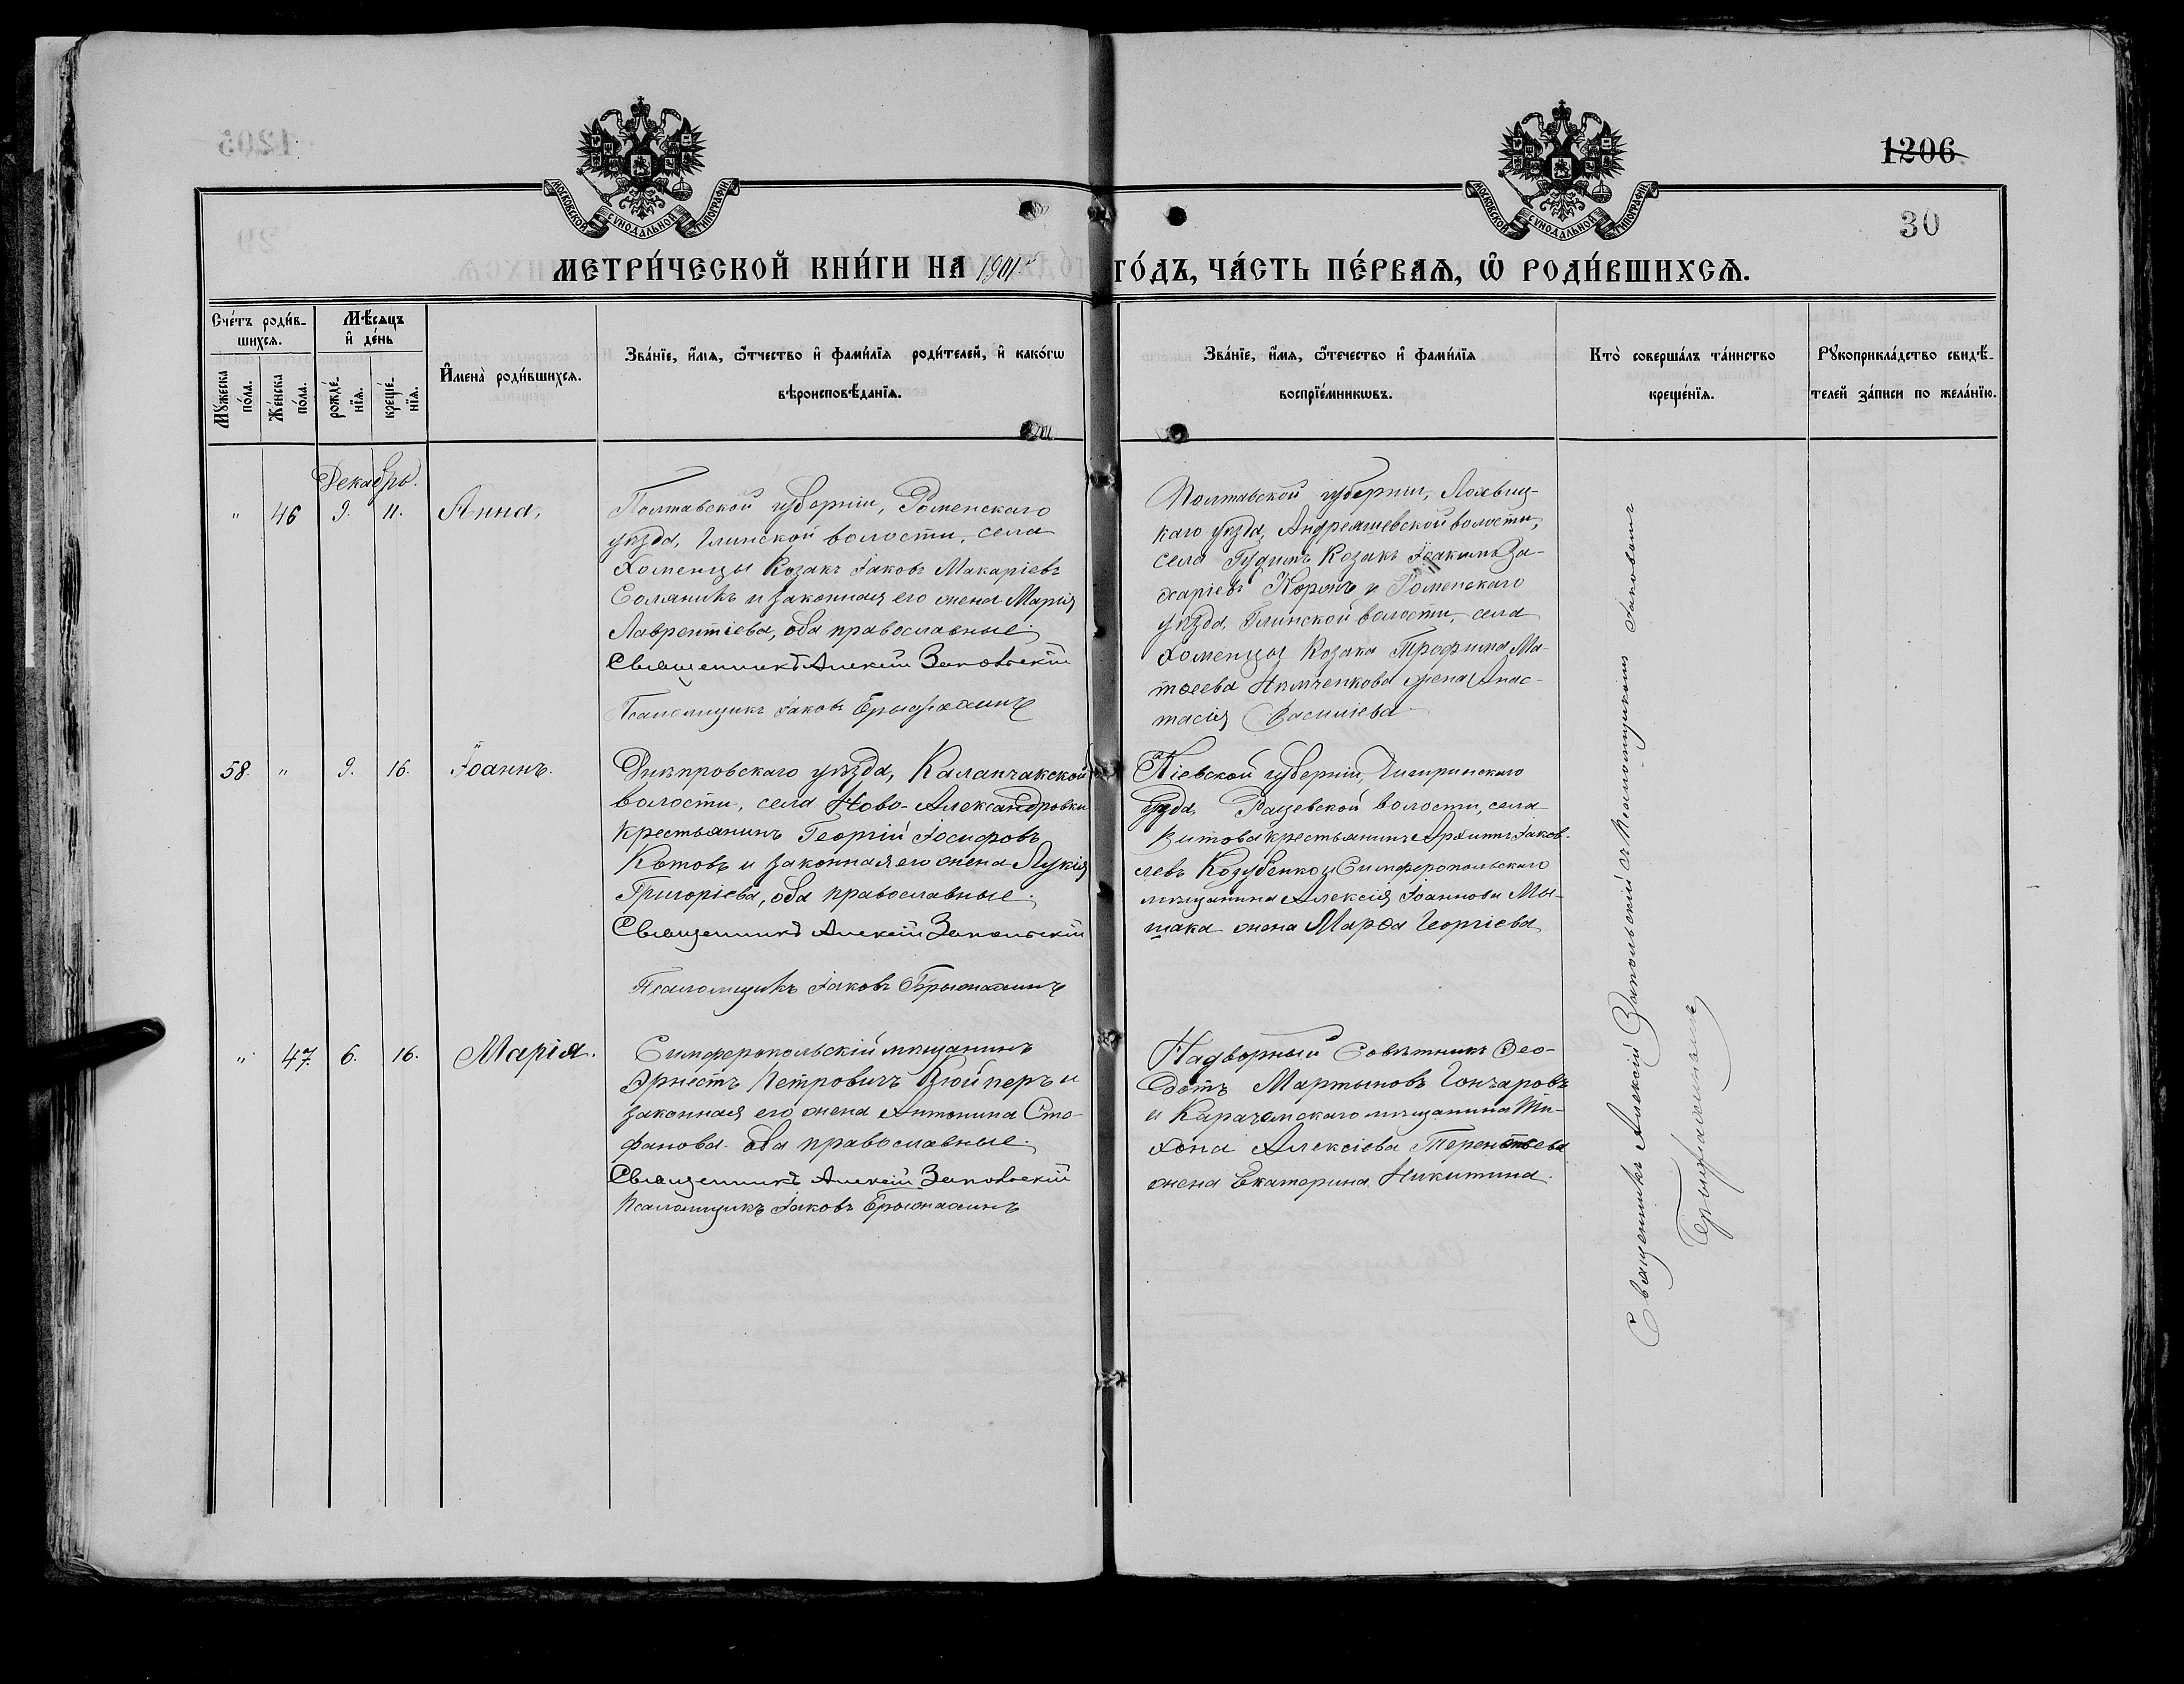 1206
30
МОСКОВСКОЙ СѴНОДАЛЬНОЙ ТИПОГРАФІИ
МОСКОВСКОЙ СѴНОДАЛЬНОЙ ТИПОГРАФІИ
МЕТРИ́ЧЕСКОЙ КНИ́ГИ НА 1901 й ГО́ДЪ, ЧА́СТЬ ПЕ́РВАѦ, Ѡ҆ РОДИ́ВШИХСѦ.
Сче́тъ роди́в-
шихсѧ.
Мꙋ́жеска по́ла.
Же́нска по́ла.
Мѣ́сяцъ и҆ де́нь
рожде́-нїѧ.
креще́-нїѧ.
И҆мена̀ роди́вшихсѧ.
Зва́нїе, и҆́мѧ, ѻ҆́тчество и҆ фами́лїѧ роди́телей, и҆ како́гѡ
вѣроисповѣ́данїѧ.
Зва́нїе, и҆́мѧ, ѻ҆́течество и҆ фами́лїѧ
воспрїе́мникѡвъ.
Кто̀ соверша́лъ та́инство
креще́нїѧ.
Рꙋкоприкла́дство свидѣ́-
телей за́писи по жела́нїю.
Декабрь.
" 46 9. 11. Анна,
Полтавской губерніи, Роменскаго
уѣзда, Глинской волости, села
Хоменцы Козакъ Іаковъ Макаріевъ
Соляникъ и законная его жена Марія
Лаврентіева, оба православные.
Священникъ Алексій Запольскій
Псаломщикъ Іаковъ
Полтавской губерніи, Лохвиц-
каго уѣзда, Андреяшевской волости,
села Гудимъ Козакъ Іоакимъ За-
харіевъ Коржъ и Роменскаго
уѣзда, Глинской волости, села
Хоменцы Козака Трофима Ма-
тѳеева Нимченкова жена Анас-
тасія Василіева
58. " 9. 16. Іоаннъ.
Днѣпровскаго уѣзда, Каланчакской
волости, села Ново-Александровки
крестьянинъ Георгій Іосифовъ
Кѣтовъ и законная его жена Лукія
Григоріева, оба православные.
Священникъ Алексій Запольскій
Псаломщикъ Іаковъ
Кіевской губерніи, Чигиринскаго
уѣзда, Рацевской волости, села
Витова крестьянинъ Архипъ Іаков-
левъ Козубенко и Симферопольскаго
мѣщанина Алексія Іоаннова Мы-
шака жена Марѳа Георгіева
" 47. 6. 16. Марія.
Симферопольскій мѣщанинъ
Эрнестъ Петровичъ Кюйперъ и
законная его жена Антонина Сте-
фанова. оба православные.
Священникъ Алексій Запольскій
Псаломщикъ Іаковъ
Надворный Совѣтникъ Ѳео-
дотъ Мартыновъ Гончаровъ
и Карачевскаго мѣщанина Ти-
хона Алексіева Терентьева
жена Екатерина Никитина.
Священникъ Алексій Запольскій съ Псаломщикомъ Іаковомъ